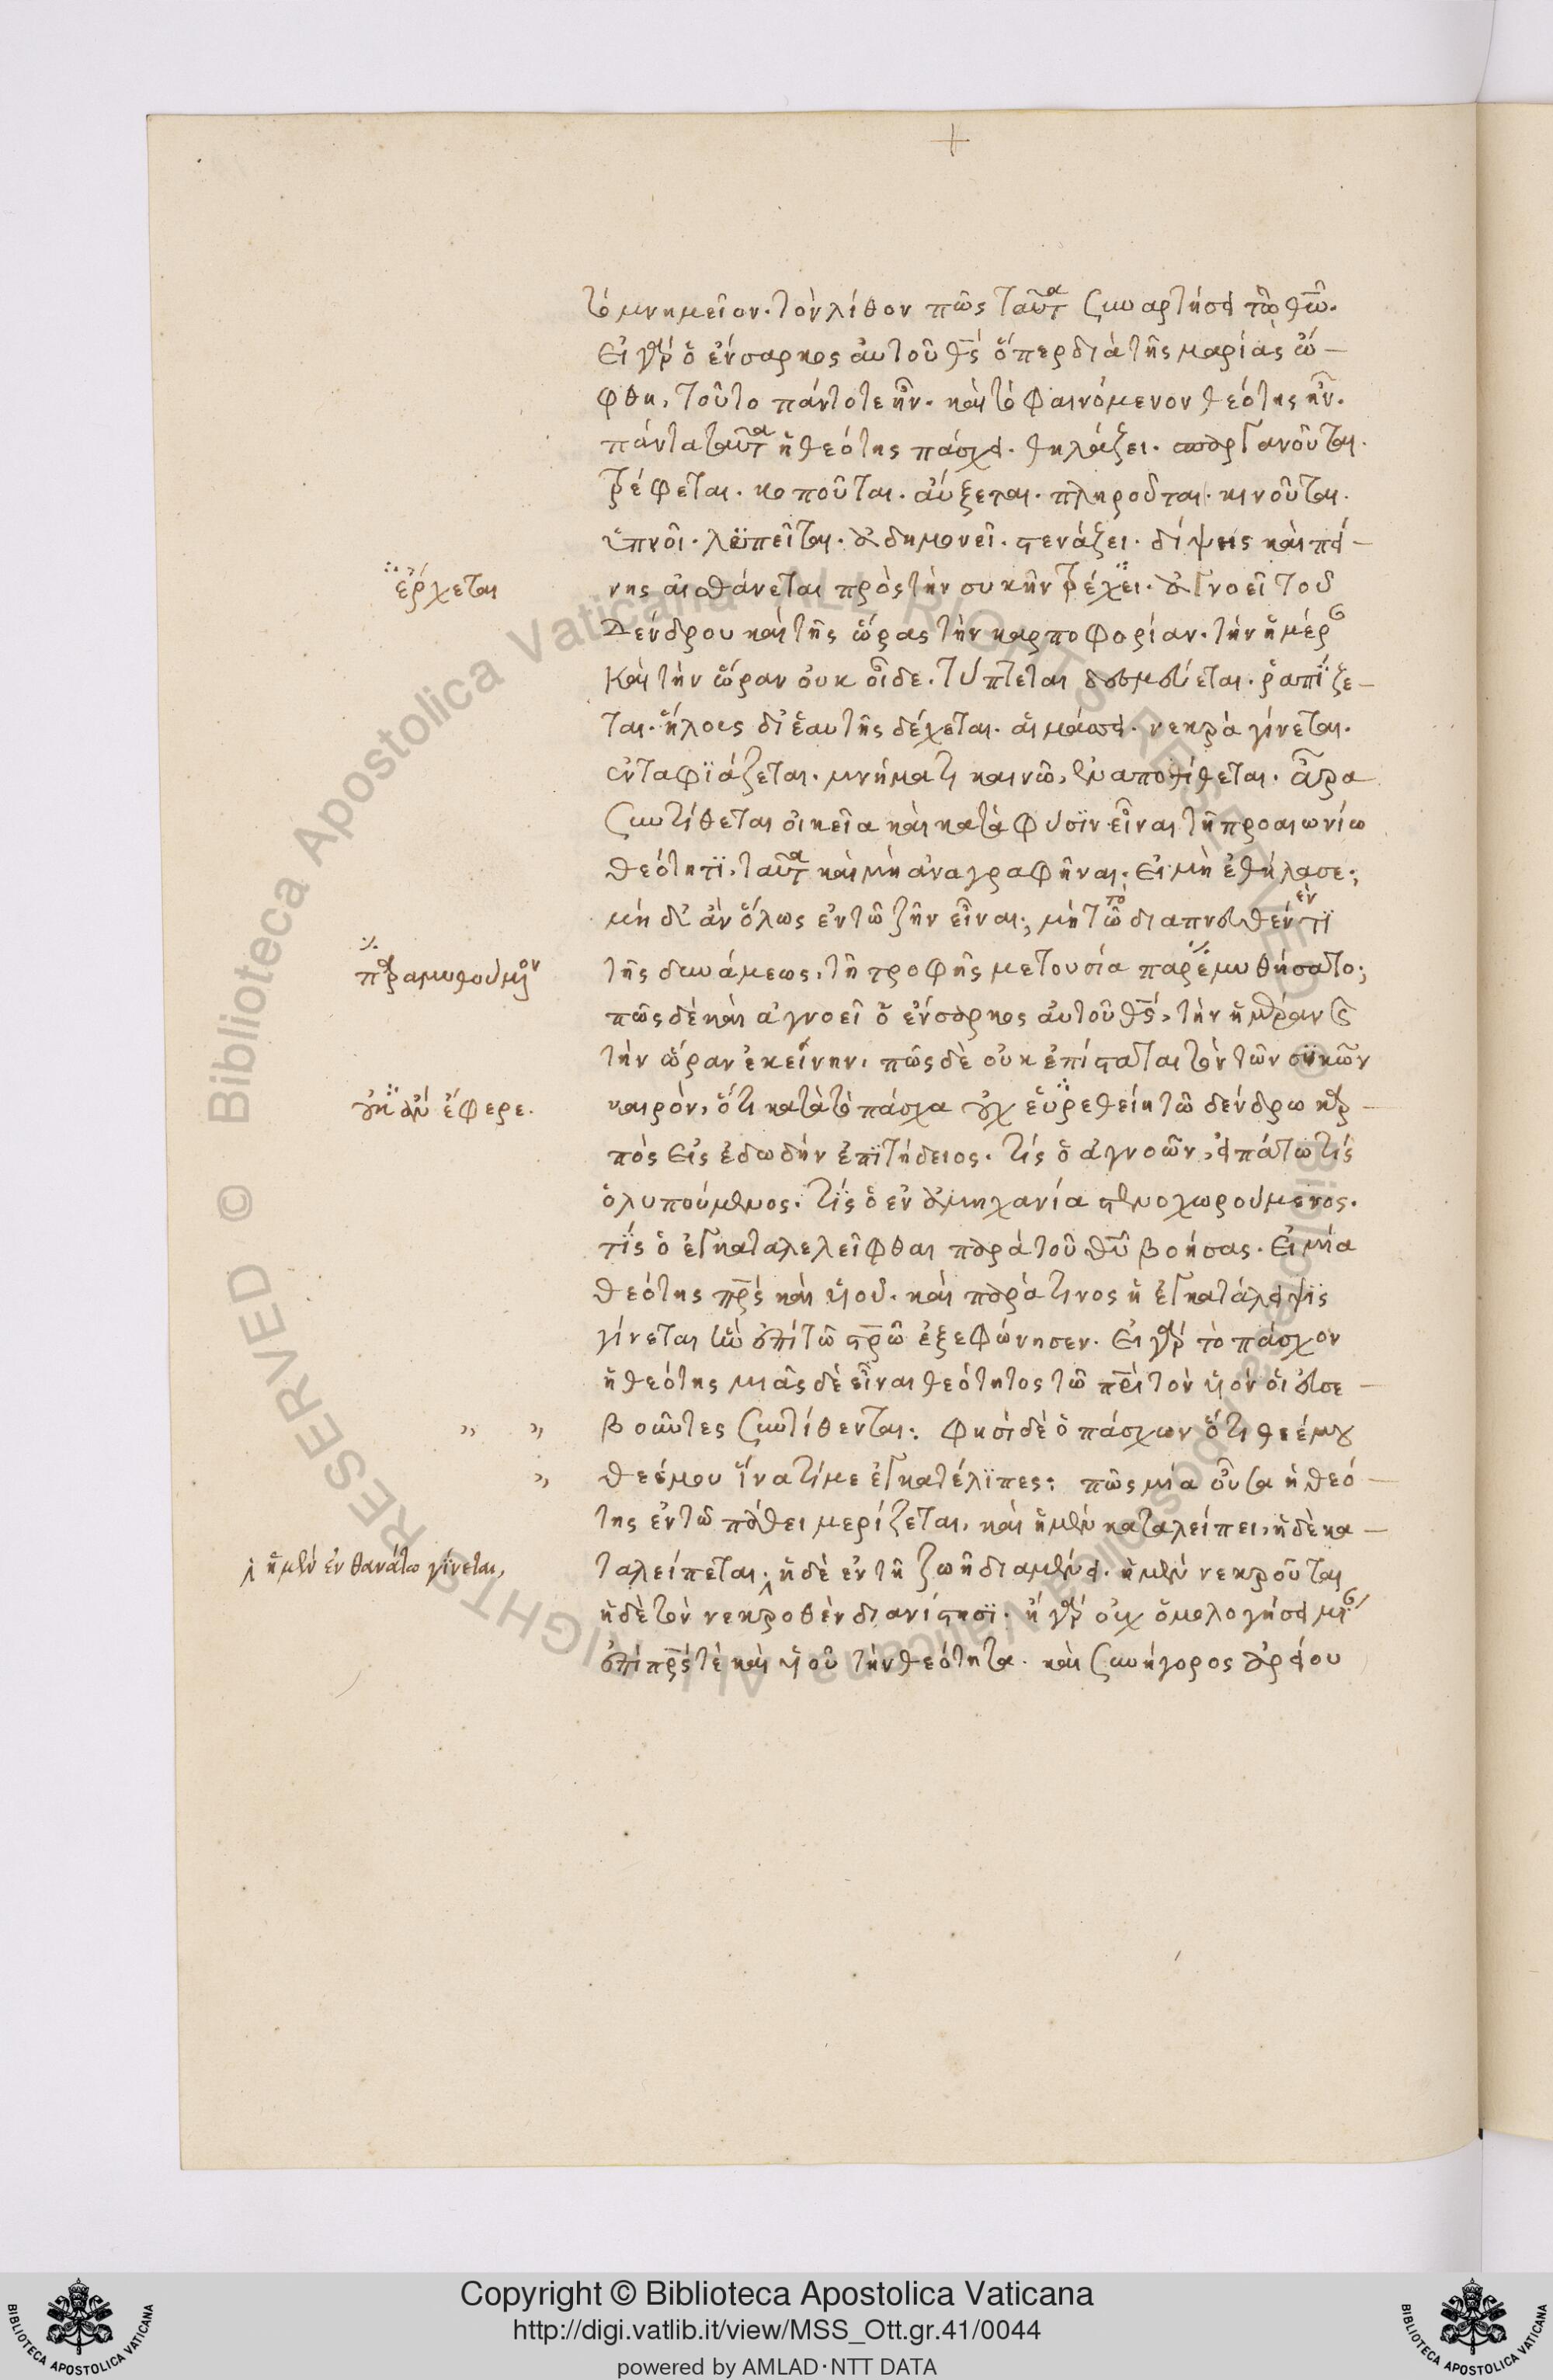 +
τὸ μνημεῖον. τὸν λίθον πῶς ταῦτα συναρτήσει τῶ θ̅ω̅.
Εἰ γὰρ ὁ ἔνσαρκος αὐτοῦ θ̅ς̅ ὅπερ διὰ τῆς μαρίας ὤ-
φθη, τοῦτο πάντοτε ἦν. καὶ τὸ φαινόμενον θεότης ἦν.
πάντα ταῦτα ἡ θεότης πάσχει. θηλάζει. σπαργανοῦται.
τρέφεται. κοποῦται. αὔξεται. πληροῦται. κινοῦται.
ὑπνοῖ. λϋπεῖται. ἀδημονεῖ. στενάζει. δίψης καὶ πεί-
ἔρχεται
νης αἰσθάνεται πρὸς τὴν συκῆν τρέχει. ἀγνοεῖ τοῦ
Δένδρου καὶ τῆς ὥρας τὴν καρποφορίαν. τὴν ἡμέραν
Καὶ τὴν ὥραν οὐκ οἶδε. τύπτεται δεσμεύεται. ῥαπίζε-
ται. ἥλους δι' ἑαυτῆς δέχεται. αἱμάσσει. νεκρὰ γίνεται.
ἐνταφϊάζεται. μνήματι καινῶ, ἐναποτίθεται. ἆρα
συντίθεται οἰκεῖα καὶ κατὰ φύσϊν εἶναι τῆ προαιωνίω
θεότητϊ, ταῦτα καὶ μὴ ἀναγραφῆναι. Εἰ μὴ ἐθήλασε;
μὴ δ' ἂν ὅλως ἐν τῶ ζῆν εἶναι; μὴ τῶ τὸ διαπνευθέν τϊ ἐν
παραμυθούμενον
τῆς δυνάμεως, τῆ τροφῆς μετουσία παρεμυθήσατο;
πῶς δὲ καὶ ἀγνοεῖ ὁ ἔνσαρκος αὐτοῦ θ̅ς̅, τὴν ἡμέραν καὶ
τὴν ὥραν ἐκείνην, πῶς δὲ οὐκ ἐπίσταται τὸν τῶν σύκων
οὐκ ἂν ἔφερε.
καιρὸν, ὅτι κατὰ τὸ πάσχα οὐχ εὑρεθείη τῶ δένδρω καρ-
πὸς Εἰς ἐδωδὴν ἐπϊτήδειος. Τίς ὁ ἀγνοῶν, εἰπάτω τίς
ὁ λυπούμενος. Τίς ὁ ἐν ἀμηχανία στενοχωρούμενος.
τίς ὁ ἐγκαταλελεῖφθαι παρὰ τοῦ θ̅υ̅ βοήσας. Εἰ μία
θεότης π̅ρ̅ς̅ καὶ υἱοῦ. καὶ παρὰ τινος ἡ ἐγκατάλειψϊς
γίνεται ἣν ἐπὶ τῶ σ̅ρ̅ω̅ ἐξεφώνησεν. Εἰ γὰρ τὸ πάσχον
ἡ θεότης μιᾶς δὲ εἶναι θεότητος τῶ π̅ρ̅ι̅ τὸν υἱὸν οἱ εὐσε-
,, ,, βοῦντες συντίθενται: φησὶ δὲ ὁ πάσχων ὅτι θεέ μου
,, θεέ μου ἵνα τί με ἐγκατέλϊπες: πῶς μία οὖσα ἡ θεό-
της ἐν τῶ πάθει μερίζεται, καὶ ἡ μὲν καταλείπει, ἡ δὲ κα-
ἡ μὲν ἐν θανάτω γίνεται,
ταλείπεται. ἡ δὲ ἐν τῆ ζωῆ διαμένει. ἡ μὲν νεκροῦται
ἡ δὲ τὸν νεκροθὲν διανίστησϊ. ἢ γὰρ οὐχ ὁμολογήσει μίαν
ἐπὶ π̅ρ̅ς̅ τὲ καὶ υἱοῦ τὴν θεότητα. καὶ συνήγορος ἀρείου
Biblioteca Apostolica Vaticana ALL RIGHTS RESERVED ©
Copyright © Biblioteca Apostolica Vaticana
http://digi.vatlib.it/view/MSS_Ott.gr.41/0044
powered by AMLAD·NTT DATA
BIBLIOTECA APOSTOLICA VATICANA
BIBLIOTECA APOSTOLICA VATICANA